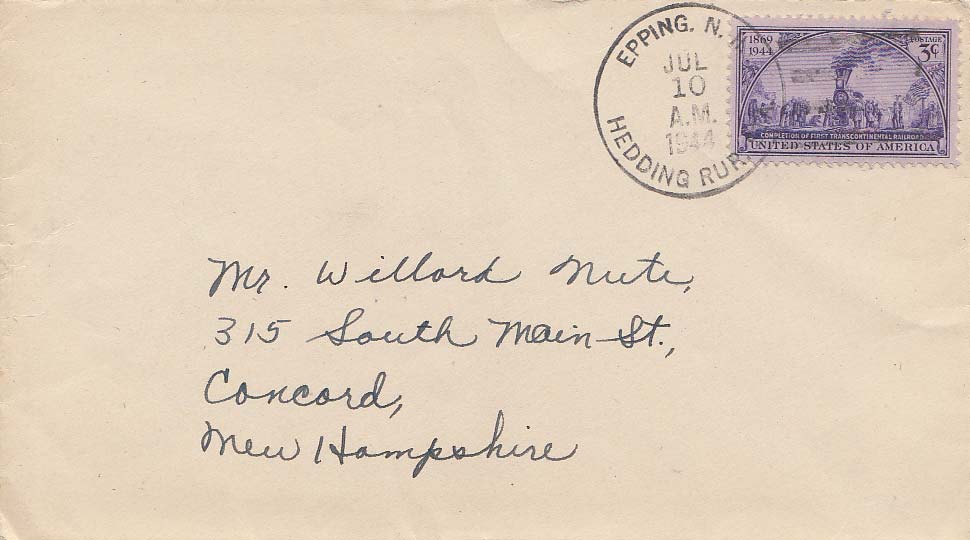 EPPING, N.H.
JUL
10
A.M.
1944
HEDDING RUR.
1869
1944
POSTAGE
3¢
COMPLETION OF FIRST TRANSCONTINENTAL RAILROAD
UNITED STATES OF AMERICA
Mr. Willard Nute,
315 South Main St.,
Concord,
New Hampshire